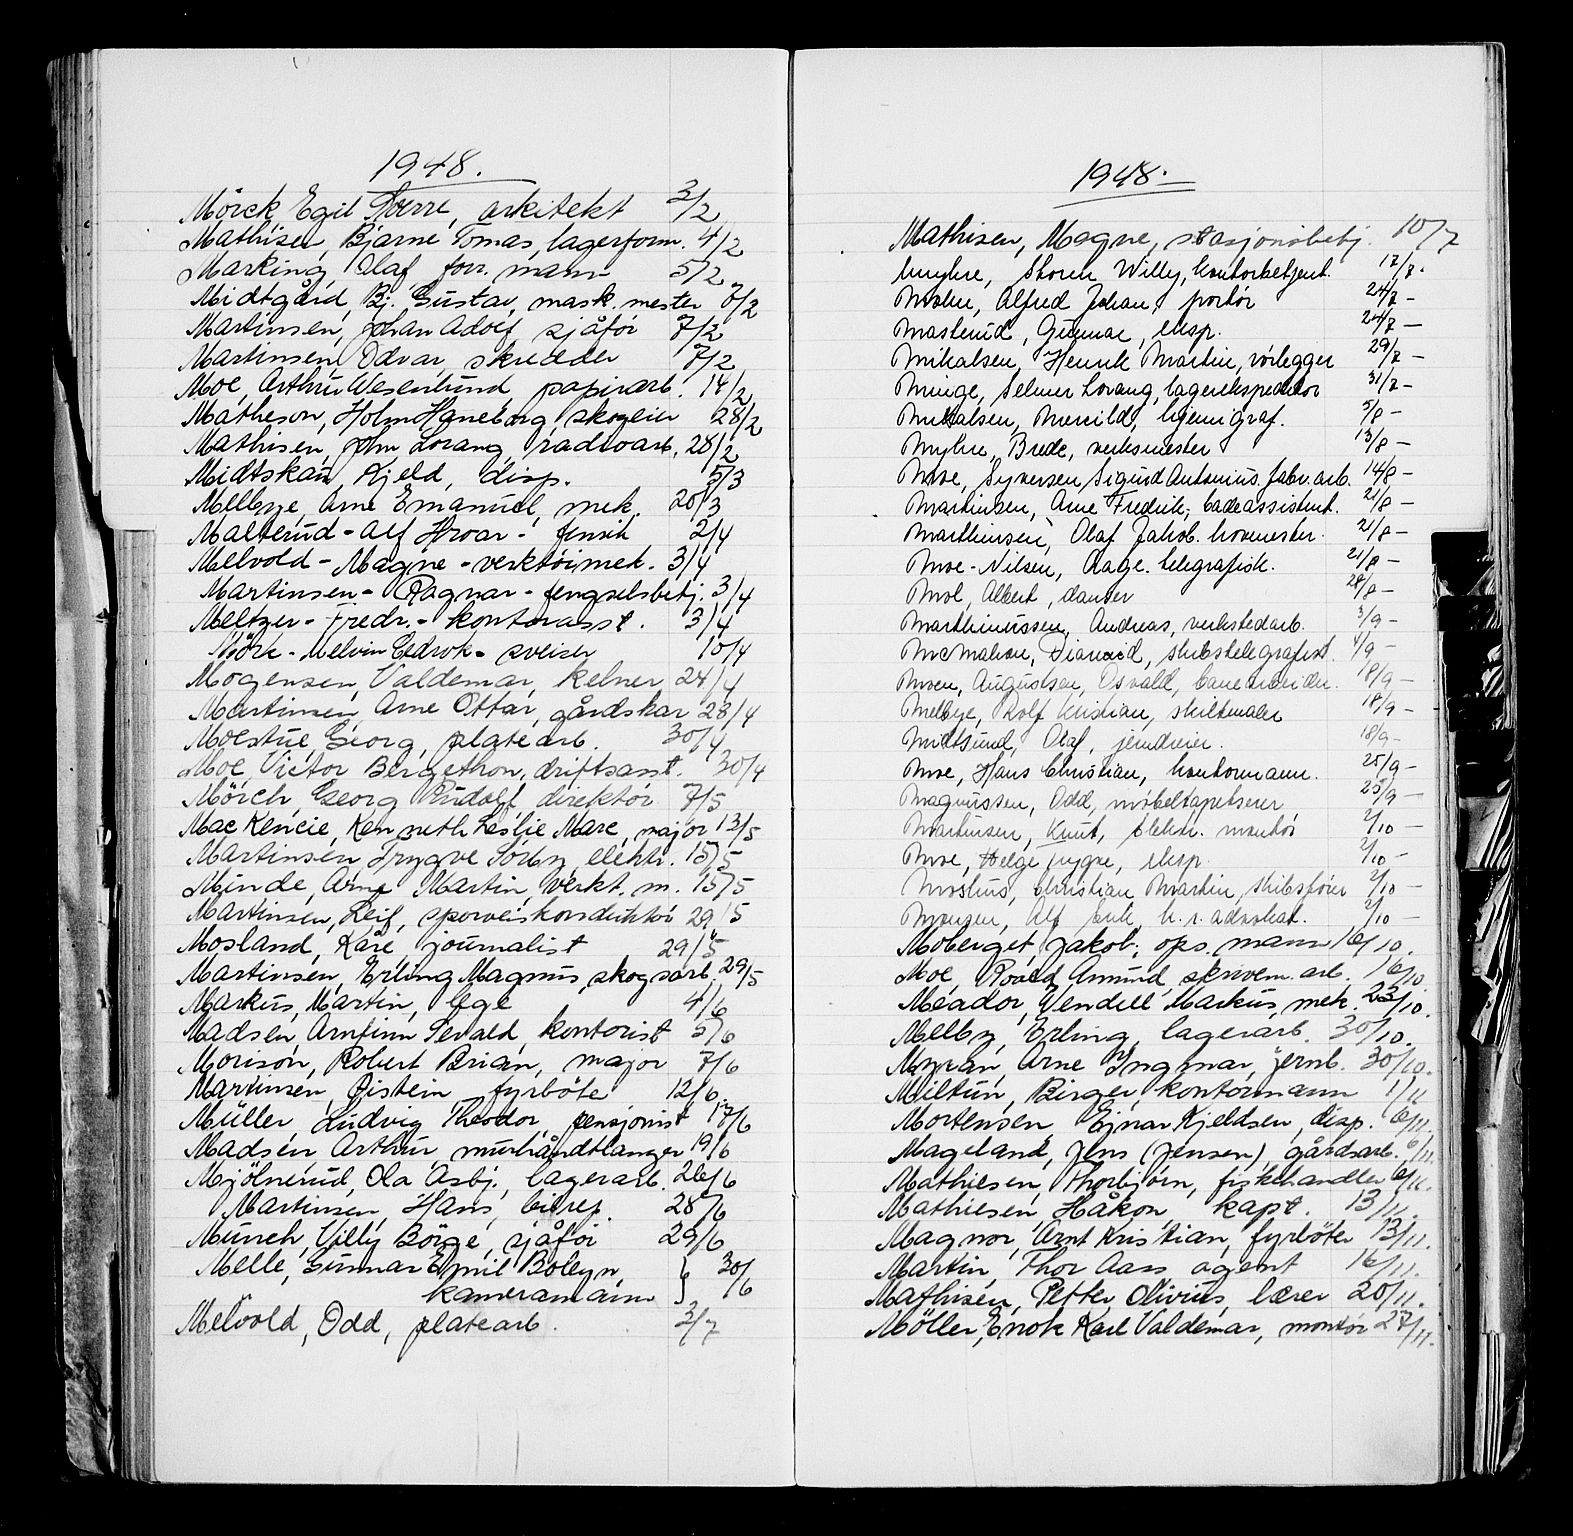 1948.
Mörck Egil Sverre, arkitekt 3/2
Mathisen, Bjarne Tomas, lagerform. 4/2
Marking, Olaf, forr. mann 5/2
Midtgård, Bj. Gustav, mask. mester 7/2
Martinsen, Johan Adolf, sjåför 7/2
Martinsen, Odvar, skredder 7/2
Moe, Arthur Wesenlund, papirarb. 14/2
Matheson, Holm Haneborg, skogeier 28/2
Mathisen, John Lorang, radioarb. 28/2
Midtskau, Kjeld, disp. 5/3
Mellbye, Arne Emanuel, mek. 20/3
Malterud - Alf Hroar - 2/4
Melvold - Magne - verktöimek. 3/4
Martinsen - Ragnar - fengselsbetj. 3/4
Meltzer - Fredr. - kontorasst. 3/4
Mörk - Melvin Cedrok - sveiser 10/4
Mogensen, Valdemar, kelner 24/4
Martinsen, Arne Ottar, gårdskar 28/4
Moestue, Georg, platearb. 30/4
Moe, Victor Bergethon, driftsasst. 30/4
Mörch, Georg Rudolf, direktör 7/5
MacKencie, Kenneth Leslie Marc, major 13/5
Martinsen, Trygve Sörby, elektr. 15/5
Minde, Arne Martin, verkt. m. 15/5
Martinsen, Leif, sporveiskonduktör 29/5
Mosland, Kåre, journalist 29/5
Martinsen, Erling Magnus, skogsarb. 29/5
Markus, Martin, lege 4/6
Madsen, Arnfinn Sevald, kontorist 5/6
Morison, Robert Brian, major 7/6
Martinsen, Öistein, fyrböte 12/6.
Müller, Ludvig Theodor, pensjonist 17/6
Madsen, Arthur, murhåndtlanger 19/6
Mjölnerud, Ola Asbj., lagerarb. 26/6
Martinsen, Hans, bilrep. 28/6
Münch, Villy Börge, sjåför 29/6
Melle, Gunnar Emil Boleyn, } 30/6
kameramann
Melvold, Odd, platearb. 3/7
1948.
Mathisen, Magne, stasjonsbetj. 10/7
Myhre, Storm Willy, kontorbetjent. 17/7.
Molin, Alfred Johan, portör 24/7 -
Masterud, Gunnar, eksp. 24/7 -
Mikalsen, Henrik Martin, rörlegger 29/7 -
Minge, Selmer Lorang, lagerekspeditör 31/7 -
Mikalsen, kjemigraf. 5/8 -
Myhre, Brede, verksmester 13/8 -
Moe, Syversen, Sigurd Antonius, fabr. arb. 14/8 -
Martinsen, Arne Fredrik, badeassistent. 21/8 -
Marthinsen, Olaf Jakob. hovmester. 21/8 -
Moe-Nilsen, Aage. telegrafisk. 21/8 -
Mol, Albert, danser 28/8 -
Marthinussen, Andreas, verkstedarb. 3/9 -
McMahon, skibstelegrafist. 4/9 -
Moen, Augustsen, Osvald, 18/9 -
Melbye, Rolf Kristian, skiltmaler 18/9 -
Midtsund, Olaf, jerndreier. 18/9 -
Moe, Hans Christian, kontormann. 25/9 -
Magnussen, Odd, möbeltapetserer 25/9 -
Martinsen, Knut, elektr. montör 2/10 -
Moe, Helge Trygve, eksp. 2/10 -
Christian Martin, skibsförer 2/10 -
Alf Erik, h.r. advokat. 2/10 -
Moberget, Jakob, ops. mann 16/10.
Moe, Roald Amund, skrivem. arb. 16/10.
Meador, Wendell Markus, mek. 23/10.
Melby, Erling, lagerarb. 30/10.
Myran, Arne Ingmar, jernb. 30/10.
Miltun, Birger, kontormann 1/11
Mortensen, Ejnar Kjeldsen, disp. 6/11.
Mageland, Jens (Jensen) gårdsarb. 6/11.
Mathiesen, Thorbjørn, fiskehandler 6/11.
Mathiesen, Håkon kapt. 13/11.
Magnor, Arnt Kristian, fyrböter 13/11.
Martin, Thor Aass agent 16/11.
Mathisen, Petter Olivius, lærer 20/11.
Möller, Enok Karl Valdemar, montör 27/11.